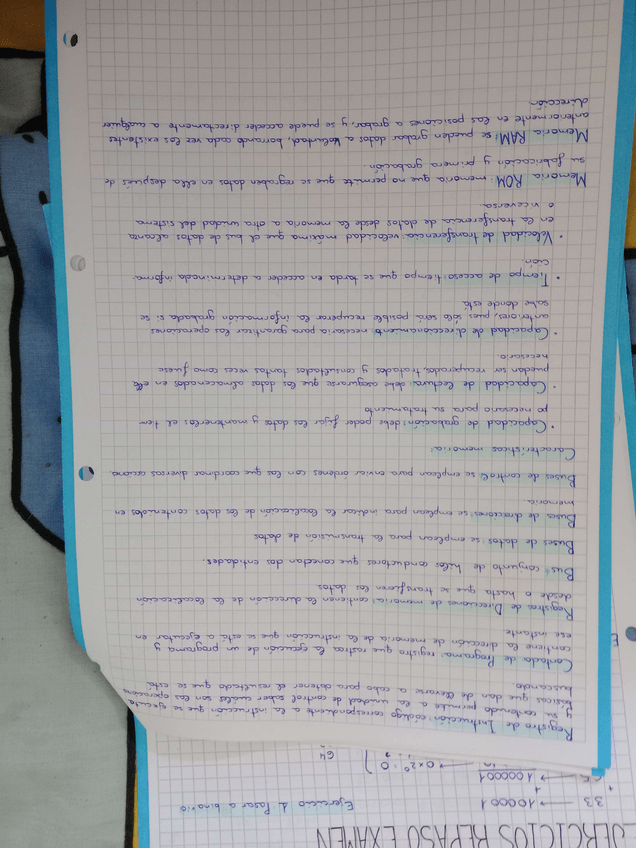 Registro de Instrucción: código correspondiente a la instrucción que se ejecuta
y su contenido permite a la unidad de control saber cuáles son las operaciones
básicas que den de llevarse a cabo para obtener el resultado que se está
buscando.
Contado de Programa: registro que rastrea la ejecución de un programa y
contiene la dirección de memoria de la instrucción que se está a ejecutar en
ese instante
Registros de Direcciones de memoria: contienen la dirección de la localización
desde o hasta que se transfieren los datos
Bus: conjunto de hilos conductores que conectan dos entidades.
Buses de datos: se emplean para la transmisión de datos
Buses de direcciones: se emplean para indicar la localización de los datos contenidos en
memoria.
Buses de control: se emplean para enviar ordenes con las que coordinar diversas acciones
Características memoria:
• Capacidad de grabación: debe poder fijar los datos y mantenerlos el tiem-
po necesario para su tratamiento
• Capacidad de lectura: debe asegurarse que los datos almacenados en ella
puedan ser recuperados, tratados y consultados tantas veces como fuese
necesario
• Capacidad de direccionamiento: necesaria para garantizar las operaciones
anteriores, pues sólo será posible recuperar la información grabada si se
sabe donde está
• Tiempo de acceso: tiempo que se tarda en acceder a determinada informa-
ción.
• Velocidad de transferencia: velocidad máxima que el bus de datos alcanza
en la transferencia de datos desde la memoria a otra unidad del sistema
o viceversa
Memoria ROM: memoria que no permite que se regraben datos en ella después de
su fabricación y primera grabación
Memoria RAM: se pueden grabar datos a voluntad, borrando cada vez los existentes
anteriormente en las posiciones a grabar, y se puede acceder directamente a cualquier
dirección
EJERCICIOS REPASO EXAMEN
Ejercicio 1. Pasar a binario
33 → 100001
→ 1000001 → 0x2⁰:0
64